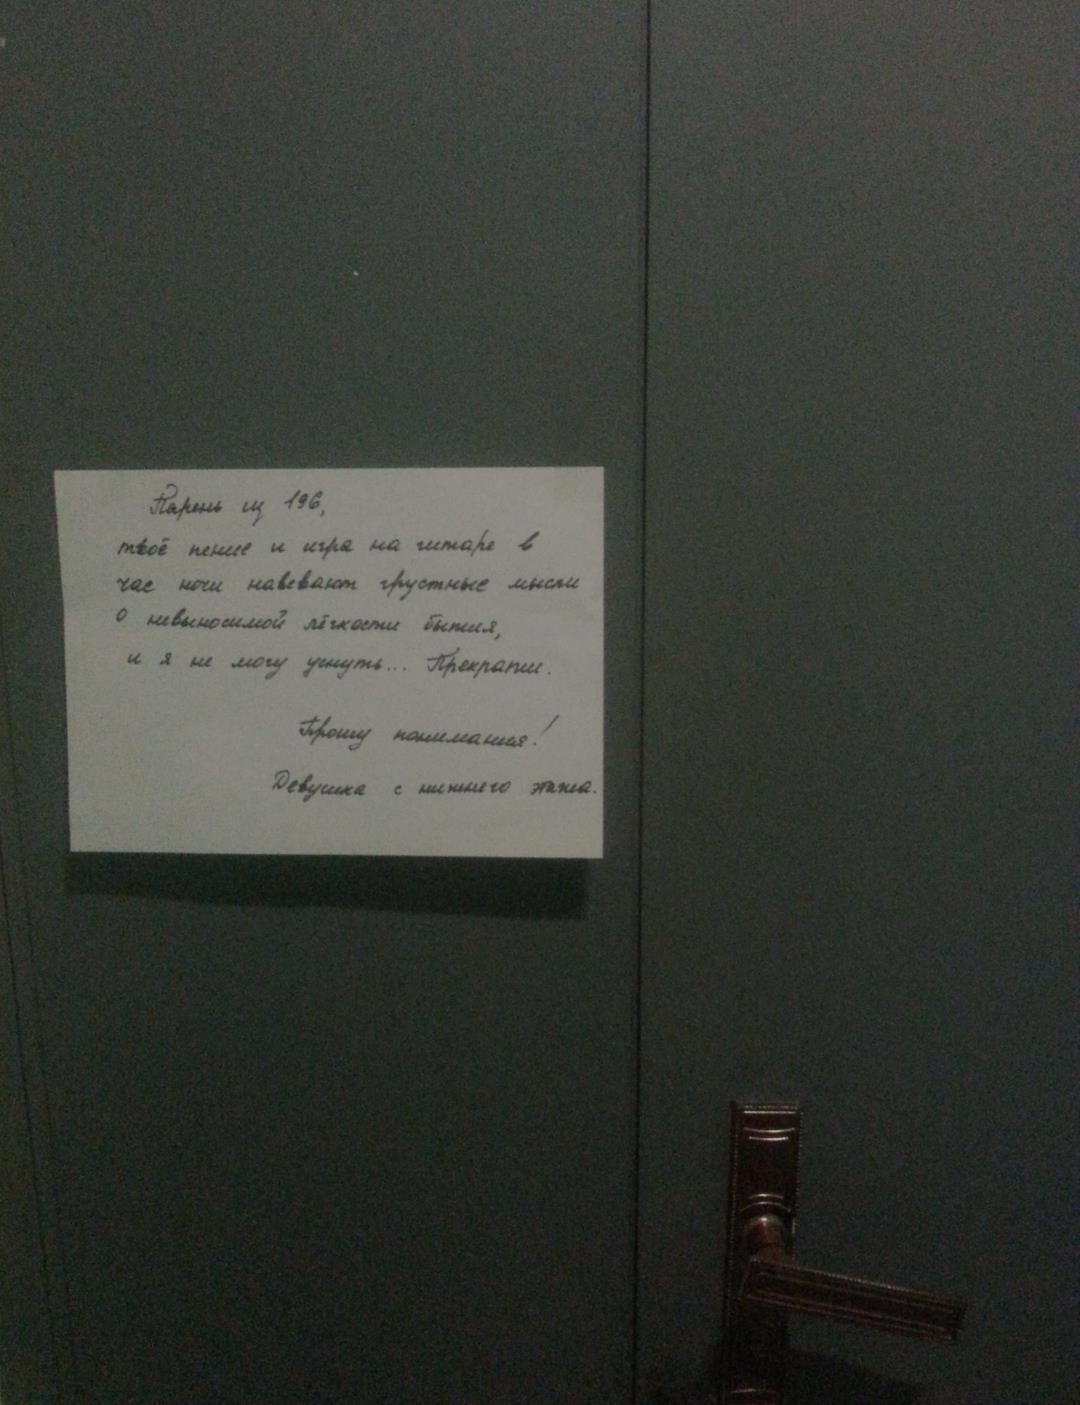 Парень из 196,
твоё пение и игра на гитаре в
час ночи навевают грустные мысли
о невыносимой лёгкости бытия,
и я не могу уснуть... Прекрати.
Прошу понимания!
Девушка с нижнего этажа.